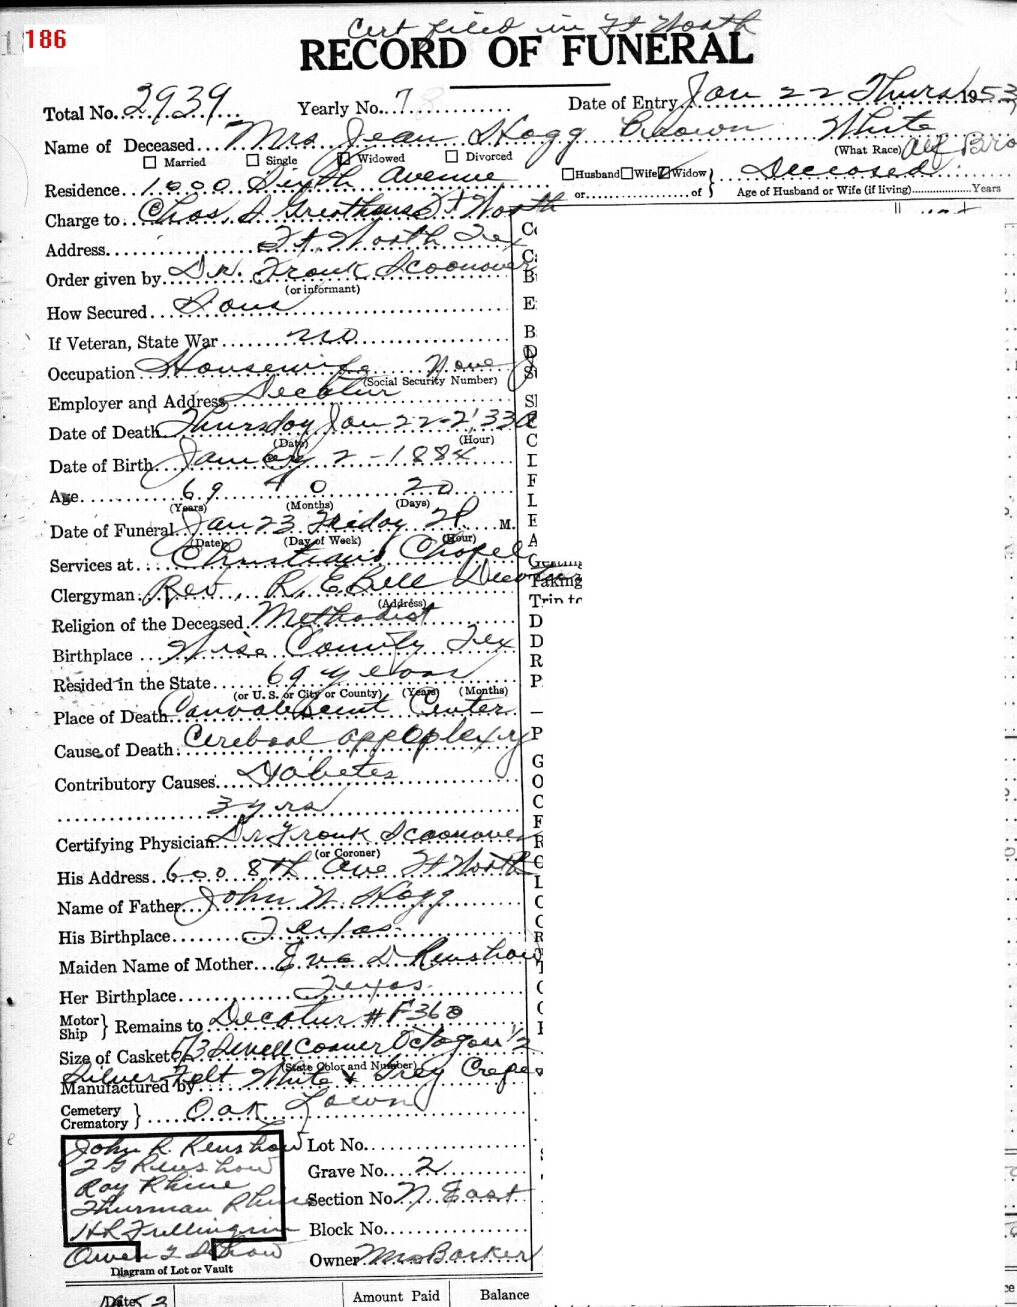 186
Cert filed in Ft Worth
RECORD OF FUNERAL
Total No. 2939 Yearly No. 78 Date of Entry Jan 22 Thurs 1953
Name of Deceased Mrs Jean Hogg Brown White
Married Single Widowed Divorced (What Race) Alf Bro
Residence 1600 Sixth Avenue Husband Wife Widow Deceased
or of Age of Husband or Wife (if living) Years
Charge to Chas. D. Greathouse Ft Worth
Address Ft Worth Tex
Order given by Dr. Frank Scoonover
(or informant)
How Secured Sons
If Veteran, State War no
Occupation Housewife None
(Social Security Number)
Employer and Address Decatur
Date of Death Thursday Jan 22-2:33A
(Date) (Hour)
Date of Birth January 2-1884
Age 69 0 20
(Years) (Months) (Days)
Date of Funeral Jan 23 Friday 2P M.
(Date) (Day of Week) (Hour)
Services at Christians Chapel
Clergyman Rev. R. E. Bell Decatur
(Address)
Religion of the Deceased Methodist
Birthplace Wise County Tex
Resided in the State 69 years
(or U. S. or City or County) (Years) (Months)
Place of Death Convalescent Center
Cause of Death Cerebral appoplexy
Contributory Causes Diabetes
3 yrs
Certifying Physician Dr Frank Scoonover
(or Coroner)
His Address 600 8th Ave Ft Worth
Name of Father John W. Hogg
His Birthplace Texas
Maiden Name of Mother Eva D Renshaw
Her Birthplace Texas
Motor Ship Remains to Decatur #F360
Size of Casket 6/3 Corner Octagon 1/2
(State Color and Number)
Silver Felt White & Grey Crepe
Manufactured by
Cemetery Crematory Oak Lawn
John R. Renshaw Lot No.
T G Renshaw Grave No. 2
Roy Rhine
Thurman Rhine Section No. N. East
H R Fullingim Block No.
Owen Owner Mrs Barker
Diagram of Lot or Vault
Date Amount Paid Balance